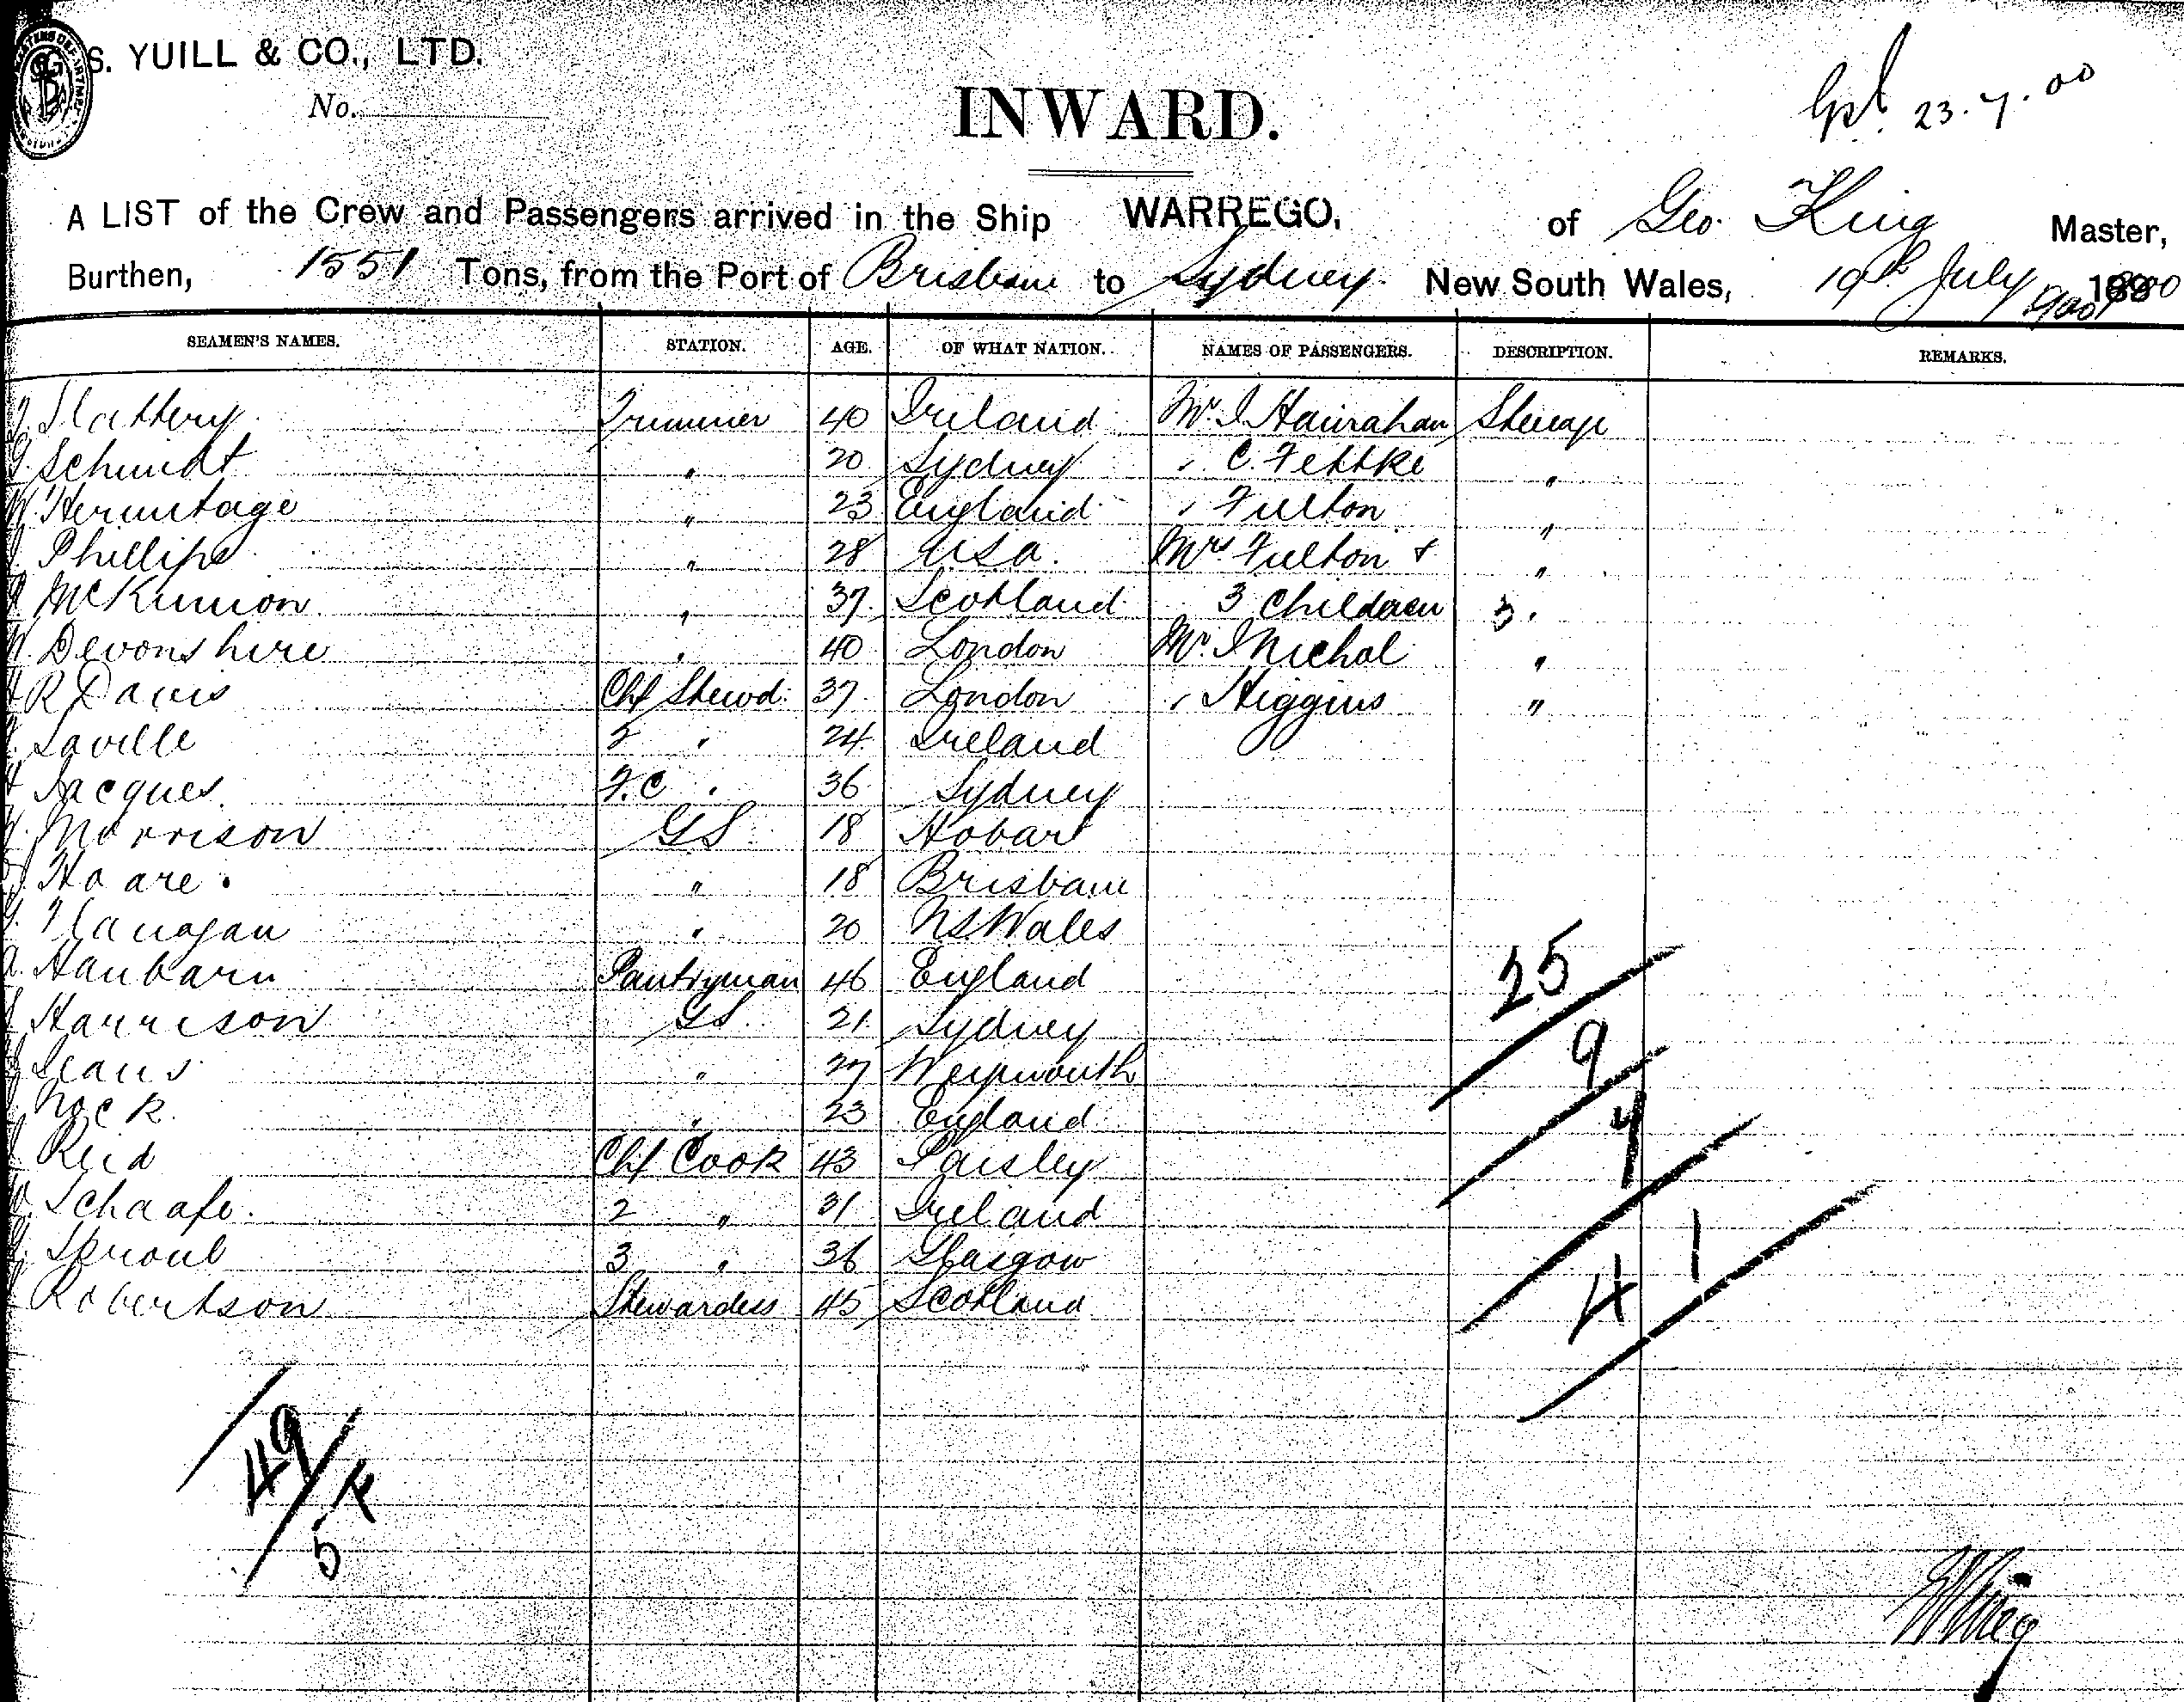 S. YUILL & CO., LTD.
No.
INWARD.
23.7.00
A LIST of the Crew and Passengers arrived in the Ship WARREGO, of Geo. King Master,
Burthen, 1551 Tons, from the Port of Brisbane to Sydney New South Wales, 19th July 1900
SEAMEN'S NAMES. STATION. AGE. OF WHAT NATION. NAMES OF PASSENGERS. DESCRIPTION. REMARKS.
Slattery Trimmer 40 Ireland Mr. J Hanrahan Steerage
Schmidt " 20 Sydney " C. Fettke "
W. Hermitage " 23 England " Fulton "
Phillips " 28 U.S.A. Mrs Fulton & "
McKinnon " 37 Scotland 3 Children 3 "
W. Devonshire " 40 London Mr. J Nichol "
H R Davis Chf Stewd. 37 London " Higgins "
Saville 2 " 24 Ireland
Jacques F.C. " 36 Sydney
Morrison GS 18 Hobart
Hoare. " 18 Brisbane
Flanagan " 20 N S Wales
A. Hanbarn Pantryman 46 England
Harrison GS 21 Sydney
Jeans " 27 Weymouth
Nock " 23 England
Reid Chf Cook 43 Paisley
Schaafe. 2 " 31 Ireland
Sproul 3 " 36 Glasgow
Robertson Stewardess 45 Scotland
25
9
7
41
49
5 F